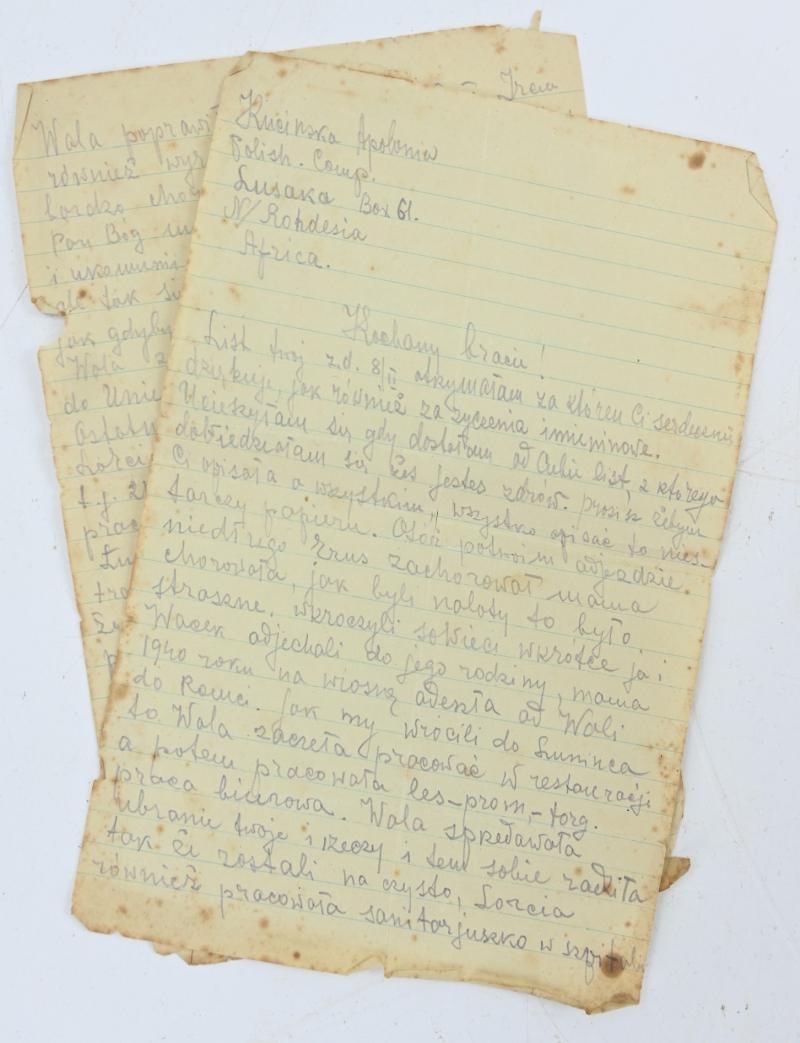 Kucinska Apolonia
Polish. Comp.
Lusaka Box 61.
N/ Rohdesia
Africa.
Kochany bracie!
List twój z.d. 8/II otrzymałam za któren Ci serdecznie
dziękuję, jak również za życzenia imieninowe.
Ucieszyłam się gdy dostałam od Ciebie list, z którego
dowiedziałam się żeś jestes zdrów. prosisz żebym
Ci opisała o wszystkiem, wszystko opisać to nies-
tarczy papieru. Otóż potwoim odjeździe
niedługo Erus zachorował mama
chorowała, jak byli naloty to było
straszne. wkroczyli sowieci wkrótce ja i
Wacek odjechali do jego rodziny, mama
1940 roku na wiosnę odeszła od Wali
do Romci. Jak my wrócili do Łuninca
to Wala zaczeła pracować w restauracji
a potem pracowała les-prom,-torg.
praca biurowa. Wala sprzedawała
ubranie twoje i rzeczy i tem sobie radziła
tak że zostali na czysto, Lorcia
również pracowała sanitarjuszko w szpitalu
Wala
również
bardzo
Pan Bóg
i
ale tak
jak gdyby
Wala
do
t.j.